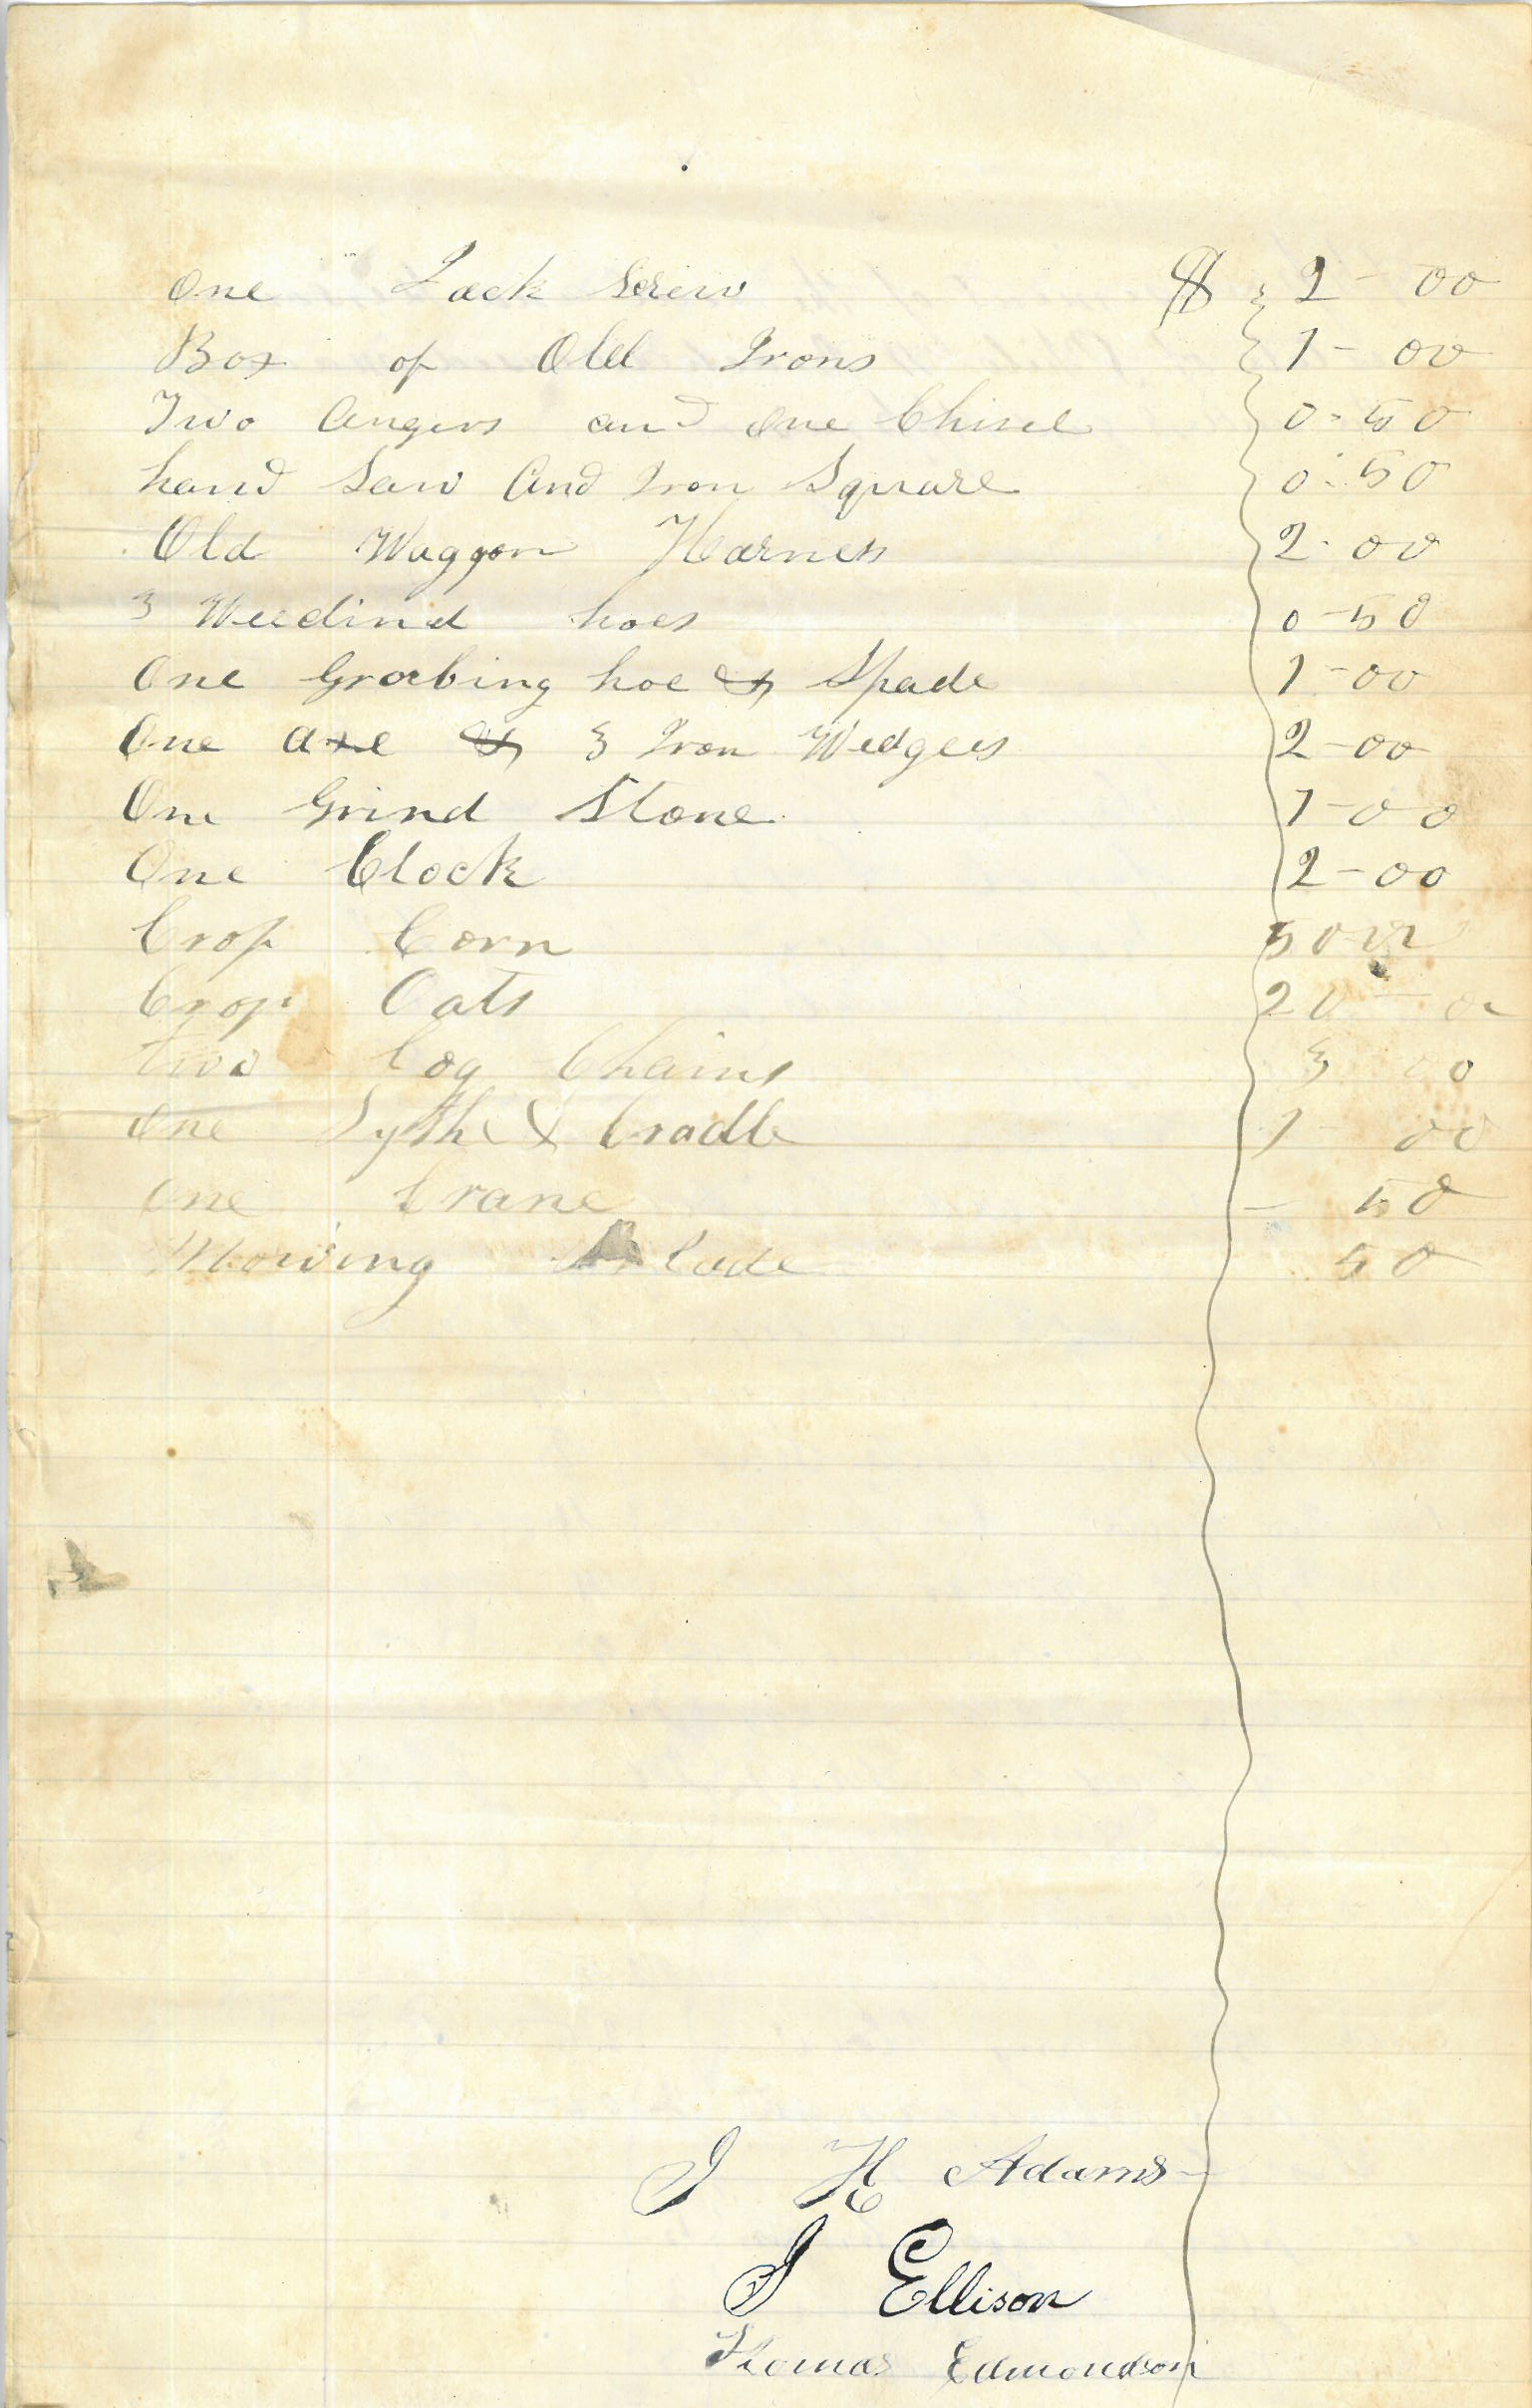 One Jack Screw $ 2 - 00
Box of Old Irons 1 - 00
Two Augers and One Chisel 0 - 50
hand Saw And Iron Square 0 - 50
Old Waggon Harness 2 - 00
3 Weedind hoes 0 - 50
One Grorbing hoe & Spade 1 - 00
One axe & 3 Iron Wedges 2 - 00
One Grind Stone 1 - 00
One Clock 2 - 00
Crop Corn 50 00
Crop Oats 20 - 00
two Log Chains 3 00
One Syth & Cradle 1 - 00
One Crane - 50
Mowing Blade 50
J H Adams
J Ellison
Thomas Edmondson